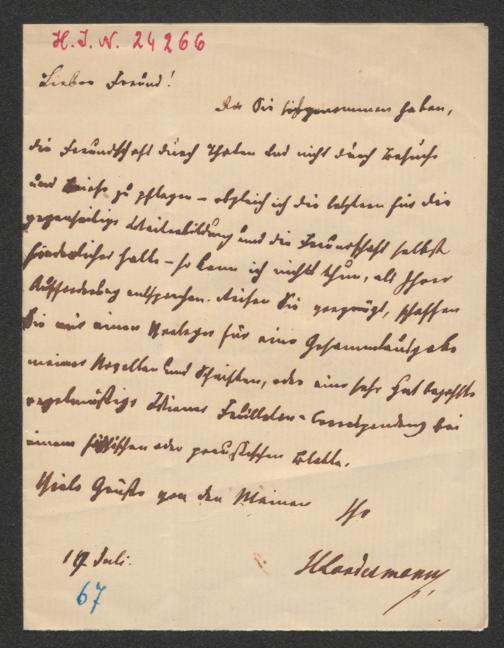 H. I. N. 24266
Lieber Freund!
Da Sie sich vorgenommen haben,
die Freundschaft durch Thaten und nicht durch Besuche
und Briefe zu pflegen – obgleich ich die letztern für die
gegenseitige Weiterbildung und die Freundschaft selbst
förderlicher halte – so kann ich nichts thun, als Ihrer
Aufforderung entsprechen. Seien Sie gegrüßt, schaffen
Sie mir einen Verleger für eine Gesammtausgabe
meiner Novellen und Schriften, oder eine sehr gut bezahlte
regelmäßige Wiener Feuilleton-Correspondenz bei
einem sächsischen oder preußischen Blatte.
Viele Grüße von den Meinen
Ihr
17 Juli.
67
HLandesmann